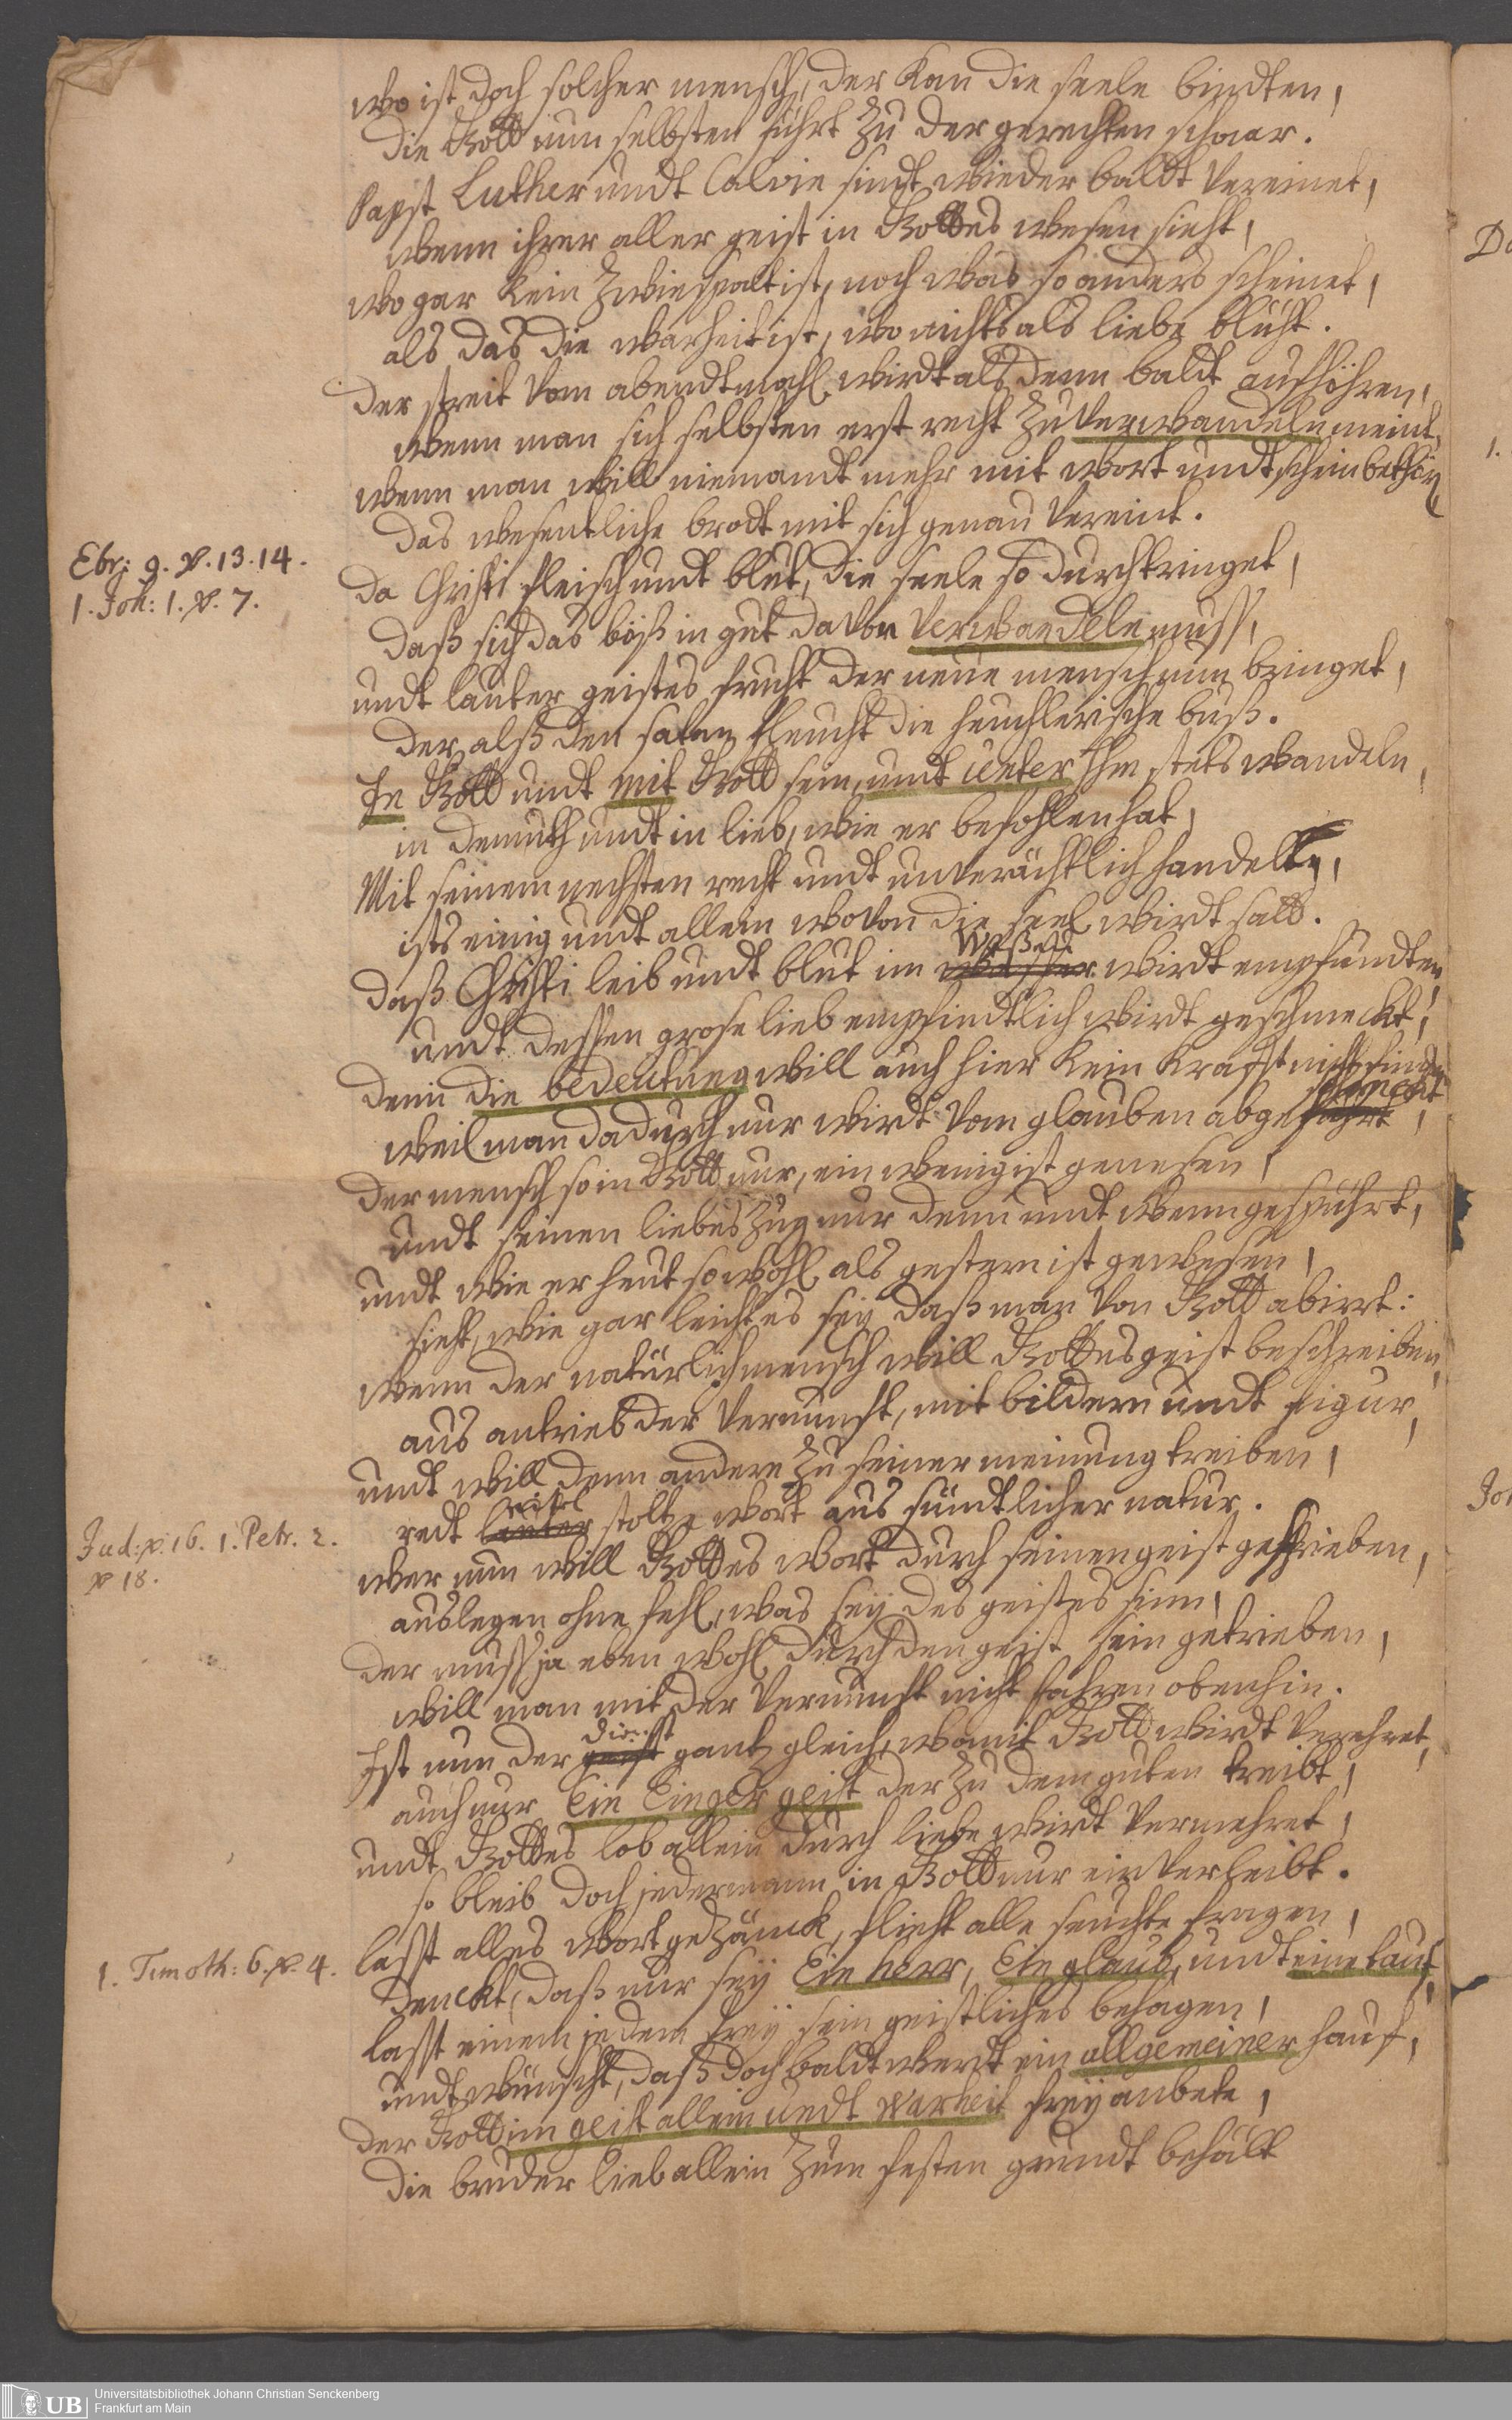 wo ist doch solcher mensch, der kan die seele bindten,
die Gott nun selbsten führt zu der gerechten schaar.
Papst Luther undt Calvin sindt wieder baldt vereinet,
wenn ihrer aller geist in Gottes wesen sieht,
wo gar kein zwiespalt ist, noch was so anders scheinet,
als das die warheit ist, wo nichts als liebe blüht.
der streit vom abendtmahl wirdt als denn baldt aufhöhren,
wenn man sich selbsten erst recht zu verwandeln meint,
wenn man will niemandt mehr mit wort undt schein bethörn
das wesentliche brodt mit sich genau vereint.
Ebr: 9. v. 13. 14.
1. Joh: 1. v. 7.
da Christi fleisch undt blut, die seele so durchtringet,
daß sich das böß in gut davon verwandeln muß,
undt lauter geistes frucht der neue mensch nun bringet,
der alß den satan fleucht die heuchlerische buß.
In Gott undt mit Gott sein, undt unter Ihm stets wandeln,
in demuth undt in lieb, wie er befohlen hat,
Mit seinem nechsten recht undt unverächtlich handeln,
ists einig undt allein wovon die seel wirdt satt.
daß Christi leib undt blut im weßen wirdt empfundten,
undt dessen grose lieb empfindtlich wirdt geschmeckt,
denn die bedeutung will auch hier kein krafft nicht finden
weil man dadurch nur wirdt vom glauben abgeschreckt,
der mensch so in Gott nur, ein wenig ist genesen,
undt seinen liebes zug nur denn undt wenn gespührt,
undt wie er heut so wohl als gestern ist gewesen,
sieht, wie gar leicht es sey daß man von Gott abirrt:
wenn der natürlich mensch will Gottes geist beschreiben,
aus antrieb der vernunft, mit bildern undt figur,
undt will denn andere zu seiner meinung treiben,
redt eitel stoltze wort aus sündtlicher natur.
Jud: v. 16. 1. Petr. 2.
v 18.
wer nun will Gottes wort durch seinen geist geschrieben,
auslegen ohne fehl, was sey des geistes sinn,
der muß ja eben wohl durch den geist sein getrieben,
will man mit der vernunft nicht fahren obenhin.
Ist nun der dienst gantz gleich, womit Gott wirdt verehret,
auch nur Ein Einger geist der zu dem guten treibt,
undt Gottes lob allein durch liebe wirdt vermehret,
so bleib doch jedermann in Gott nur einverleibt.
1. Timoth: 6. v. 4.
lasst alles wort gezänck, flieht alle seuchte fragen,
denckt, daß nur sey Ein herr, Ein glaub, undt eine tauf,
lasst einem jedem frey sein geistliches behagen,
undt wünscht, daß doch baldt werdt ein allgemeiner hauf,
der Gott im geist allein undt warheit frey anbete,
die bruder lieb allein zum festen grundt behält
UB Universitätsbibliothek Johann Christian Senckenberg
Frankfurt am Main